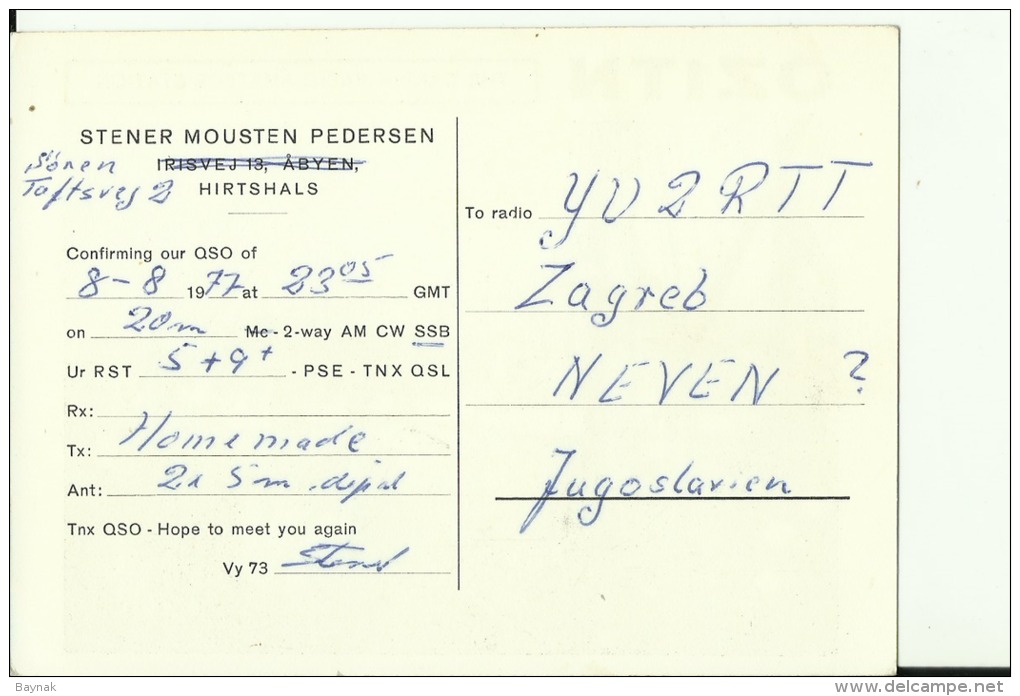 STENER MOUSTEN PEDERSEN
IRISVEJ 13, ÅBYEN,
Sören
Toftsvej 2
HIRTSHALS
Confirming our QSO of
8-8 1977 at 23 05 GMT
on 20m Mc - 2-way AM CW SSB
Ur RST 5+9+ - PSE - TNX QSL
Rx:
Tx: Homemade
Ant: 2x 5m dipol
Tnx QSO - Hope to meet you again
Vy 73 Stener
To radio YU2RTT
Zagreb
NEVEN ?
Jugoslavien
OZ1TN
Baynak
www.delcampe.net